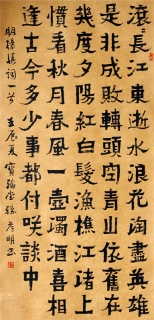 滾〻長江東逝水浪花淘盡英雄
是非成敗轉頭空青山依舊在
幾度夕陽紅白髮漁樵江渚上
慣看秋月春風一壺濁酒喜相
逢古今多少事都付咲談中
明楊慎詞一首 壬辰夏寶翰堂